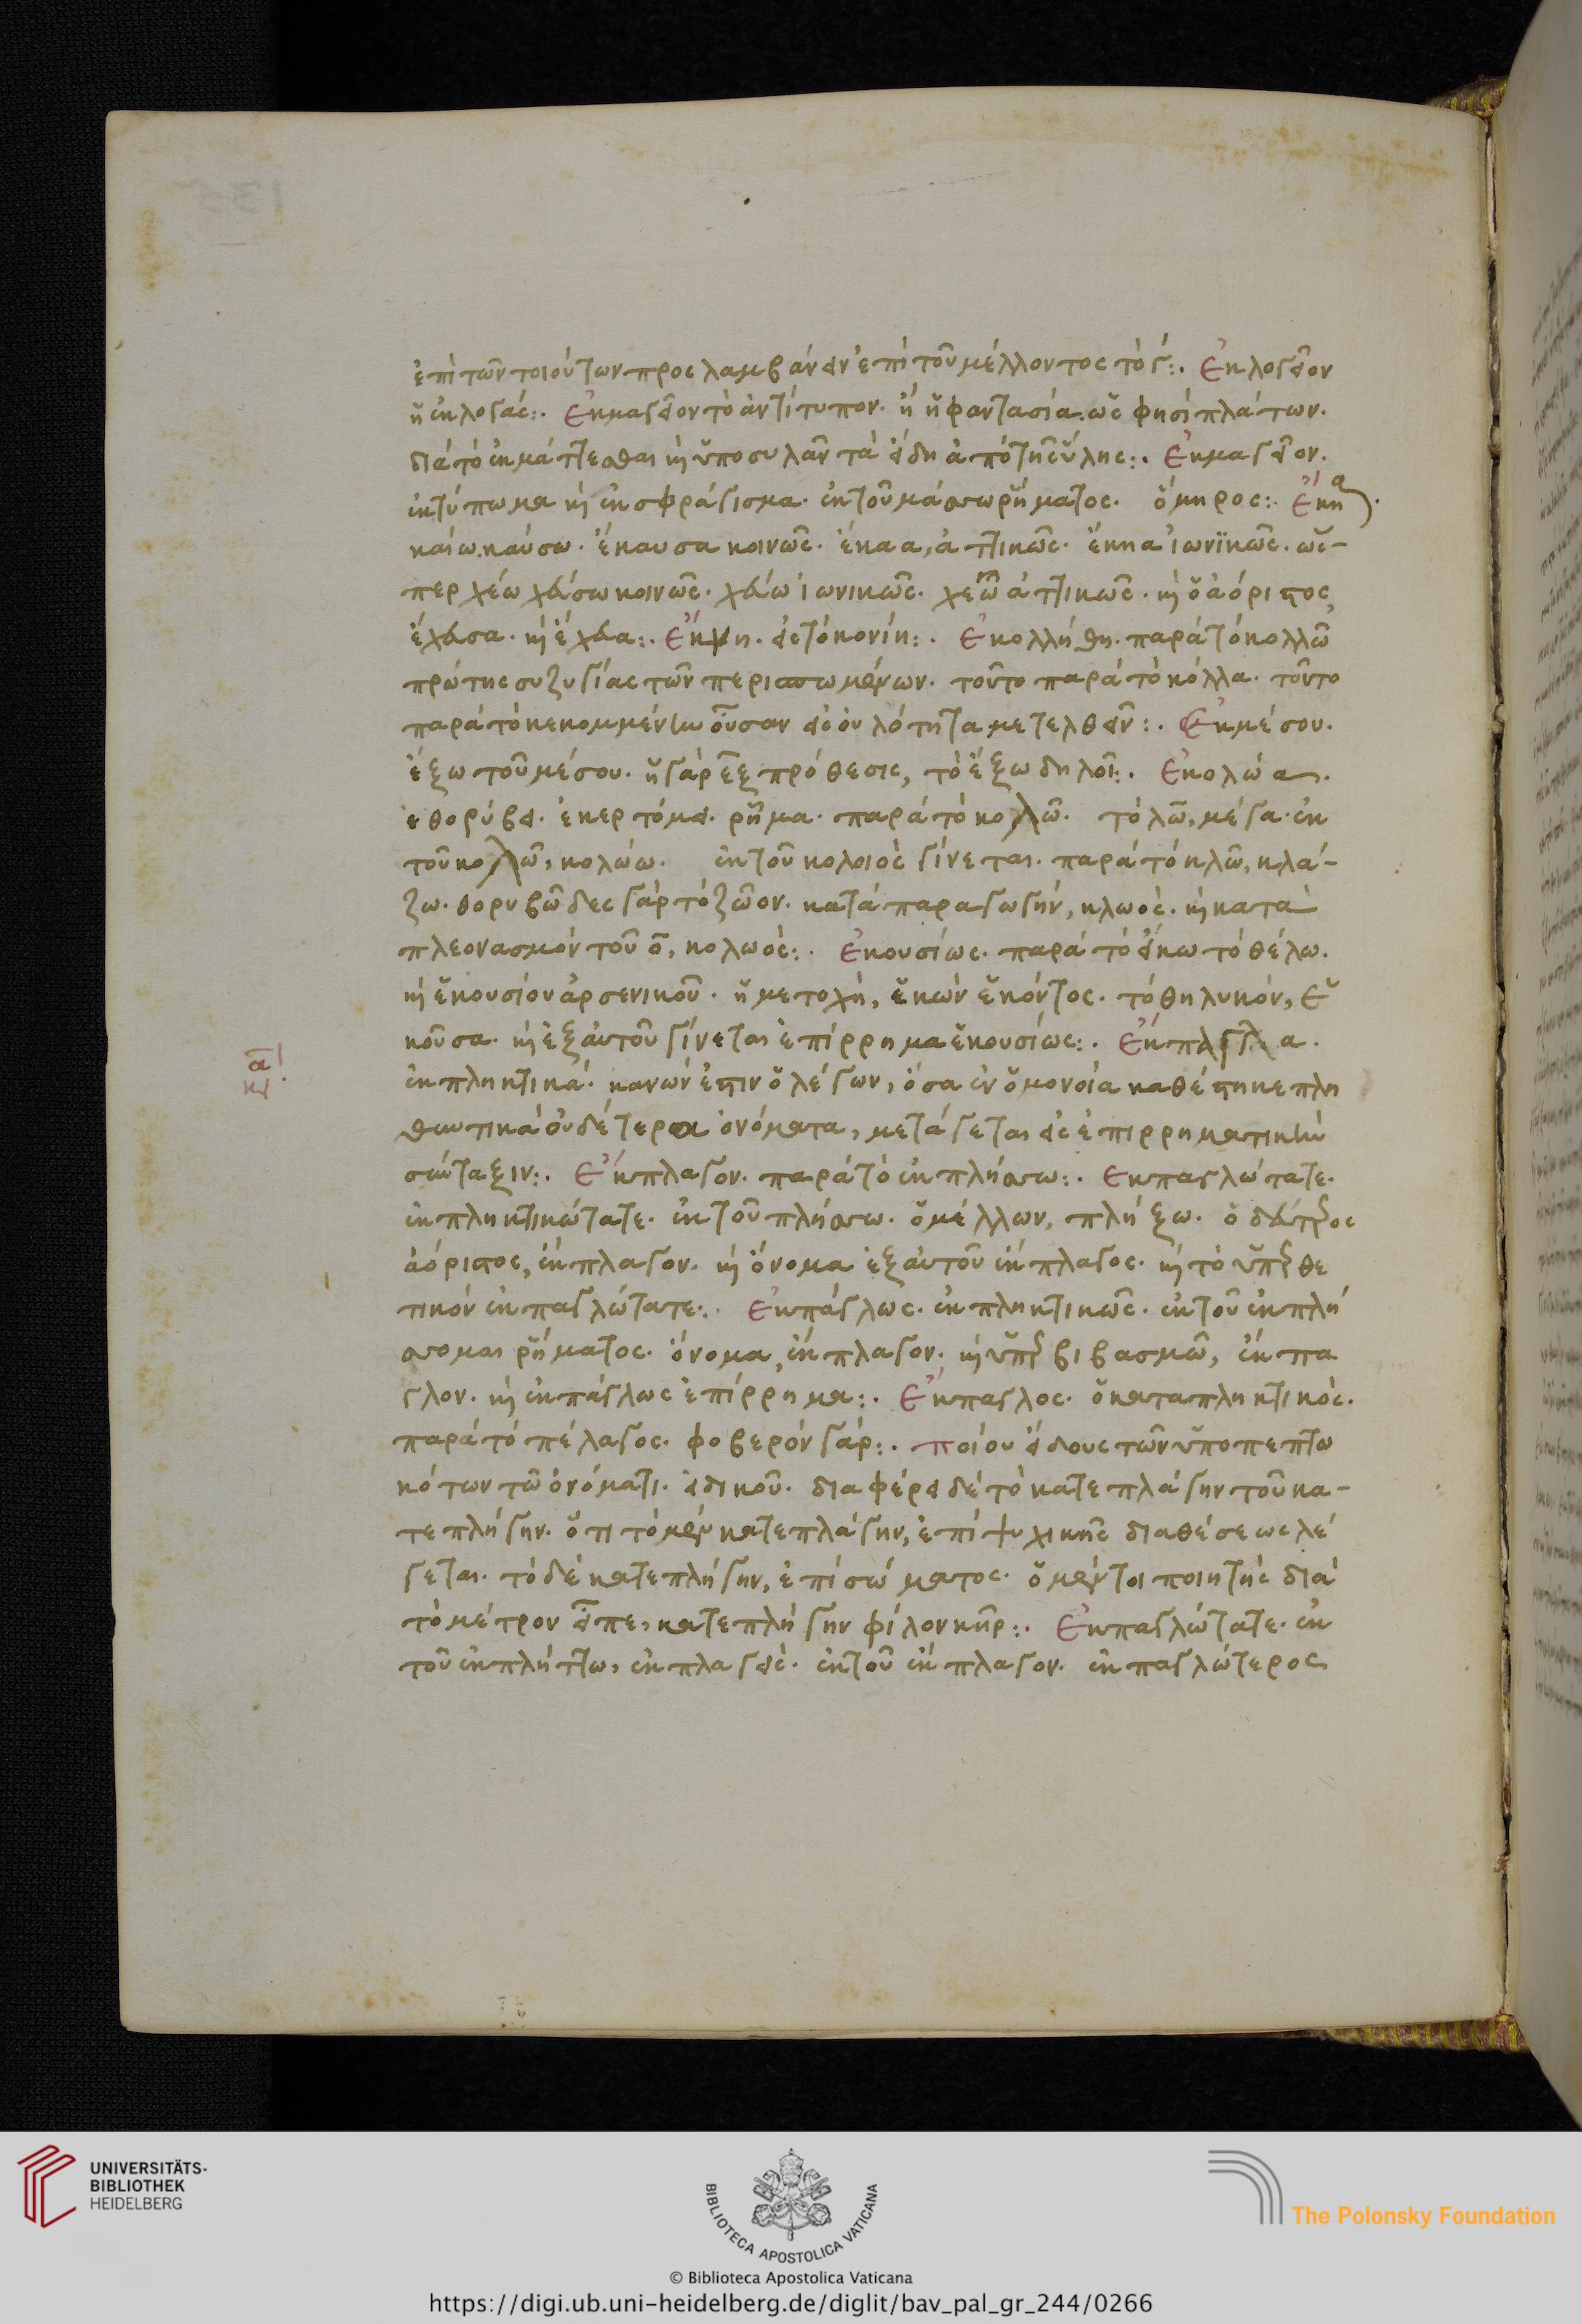 ἐπὶ τῶν τοιούτων προσλαμβάνειν ἐπὶ τοῦ μέλλοντος τὸ γ:. Ἐκλογεῖον
ἡ ἐκλογάς:. Ἐκμαγεῖον τὸ ἀντίτυπον. ἢ ἡ φαντασία. ὥς φησὶ πλάτων.
διὰ τὸ ἐκμάττεσθαι καὶ ὑποσυλᾶν τὰ εἴδη ἀπὸ τῆς ὕλης:. Ἐκμαγεῖον.
ἐκτύπωμα καὶ ἐκσφράγισμα. ἐκ τοῦ μάσσω ῥήματος. ὅμηρος:. Ἔκηα.
καίω. καύσω. ἔκαυσα κοινῶς. ἔκαα, ἀττικῶς. ἔκηα ἰωνϊκῶς. ὥσ-
περ χέω χεύσω κοινῶς. χεύω ἰωνικῶς. χεῶ ἀττικῶς. καὶ ὁ ἀόριστος,
ἔχευσα. καὶ ἔχευα:. εἰς τὸ κονίη:. Ἐκολλήθη. παρὰ τὸ κολλῶ
πρώτης συζυγίας τῶν περισπωμένων. τοῦτο παρὰ τὸ κόλλα. τοῦτο
παρὰ τὸ κεκομμένην οὖσαν εἰς ὁλότητα μετελθεῖν:. Ἐκμέσου.
ἔξω τοῦ μέσου. ἡ γὰρ ἐξ πρόθεσις, τὸ ἔξω δηλοῖ:. Ἐκολώα.
ἐθορύβει. ἐκερτόμει. ῥῆμα. παρὰ τὸ κολῶ. τὸ λῶ, μέγα. ἐκ
τοῦ κολῶ, κολώω. ἐκ τοῦ κολοιὸς γίνεται. παρὰ τὸ κλῶ, κλά-
ζω. θορυβῶδες γὰρ τὸ ζῶον. κατὰ παραγωγήν, κλωὸς. καὶ κατὰ
πλεονασμόν τοῦ ο, κολωὸς:. Ἐκουσίως. παρὰ τὸ εἴκω τὸ θέλω.
καὶ ἑκουσίον ἀρσενικοῦ. ἡ μετοχὴ, ἑκὼν ἑκόντος. τὸ θηλυκόν, ἑ
κοῦσα. καὶ ἐξ αὐτοῦ γίνεται ἐπίρρημα ἑκουσίως:. Ἔκπαγλα.
ἐκπληκτικά. κανών ἐστιν ὁ λέγων, ὅσα ἐν ὁμονοία καθέστηκε πλη
θυντικὰ οὐδέτερα ὀνόματα, μετάγεται εἰς ἐπιρρηματικὴν
σύνταξιν:. Ἔκπλαγον. παρὰ τὸ ἐκπλήσσω:. Εκπαγλώτατε.
ἐκπληκτικώτατε. ἐκ τοῦ πλήσσω. ὁ μέλλων, πλήξω. ὁ δεύτερος
ἀόριστος, ἔκπλαγον. καὶ ὄνομα ἐξ αὐτοῦ ἔκπλαγος. καὶ τὸ ὑπερθε
τικὸν ἐκπαγλώτατε:. Ἐκπάγλως. ἐκπληκτικῶς. ἐκ τοῦ ἐκπλή
σσομαι ῥήματος. ὄνομα, ἔκπλαγον. καὶ ὑπερβιβασμῶ, ἔκπα
γλον. καὶ ἐκπάγλως ἐπίρρημα:. Ἔκπαγλος. ὁ καταπληκτικός.
παρὰ τὸ πέλαγος. φοβερόν γάρ:. ποίου εἴδους τῶν ὑποπεπτω
κότων τῶ ὀνόματι. εἰδικοῦ. διαφέρει δὲ τὸ κατεπλάγην τοῦ κα-
τεπλήγην. ὅτι τὸ μὲν κατεπλάγην, ἐπὶ ψυχικῆς διαθέσεως λέ
γεται. τὸ δὲ κατεπλήγην, ἐπὶ σώματος. ὁ μέντοι ποιητὴς διὰ
τὸ μέτρον εἶπε, κατεπλήγην φίλον κῆρ:. Ἐκπαγλώτατε. ἐκ
τοῦ ἐκπλήττω, ἐκπλαγεὶς. ἐκ τοῦ ἔκπλαγον. ἐκπαγλώτερος
UNIVERSITÄTS-
BIBLIOTHEK
HEIDELBERG
BIBLIOTECA APOSTOLICA VATICANA
The Polonsky Foundation
© Biblioteca Apostolica Vaticana
https://digi.ub.uni-heidelberg.de/diglit/bav_pal_gr_244/0266